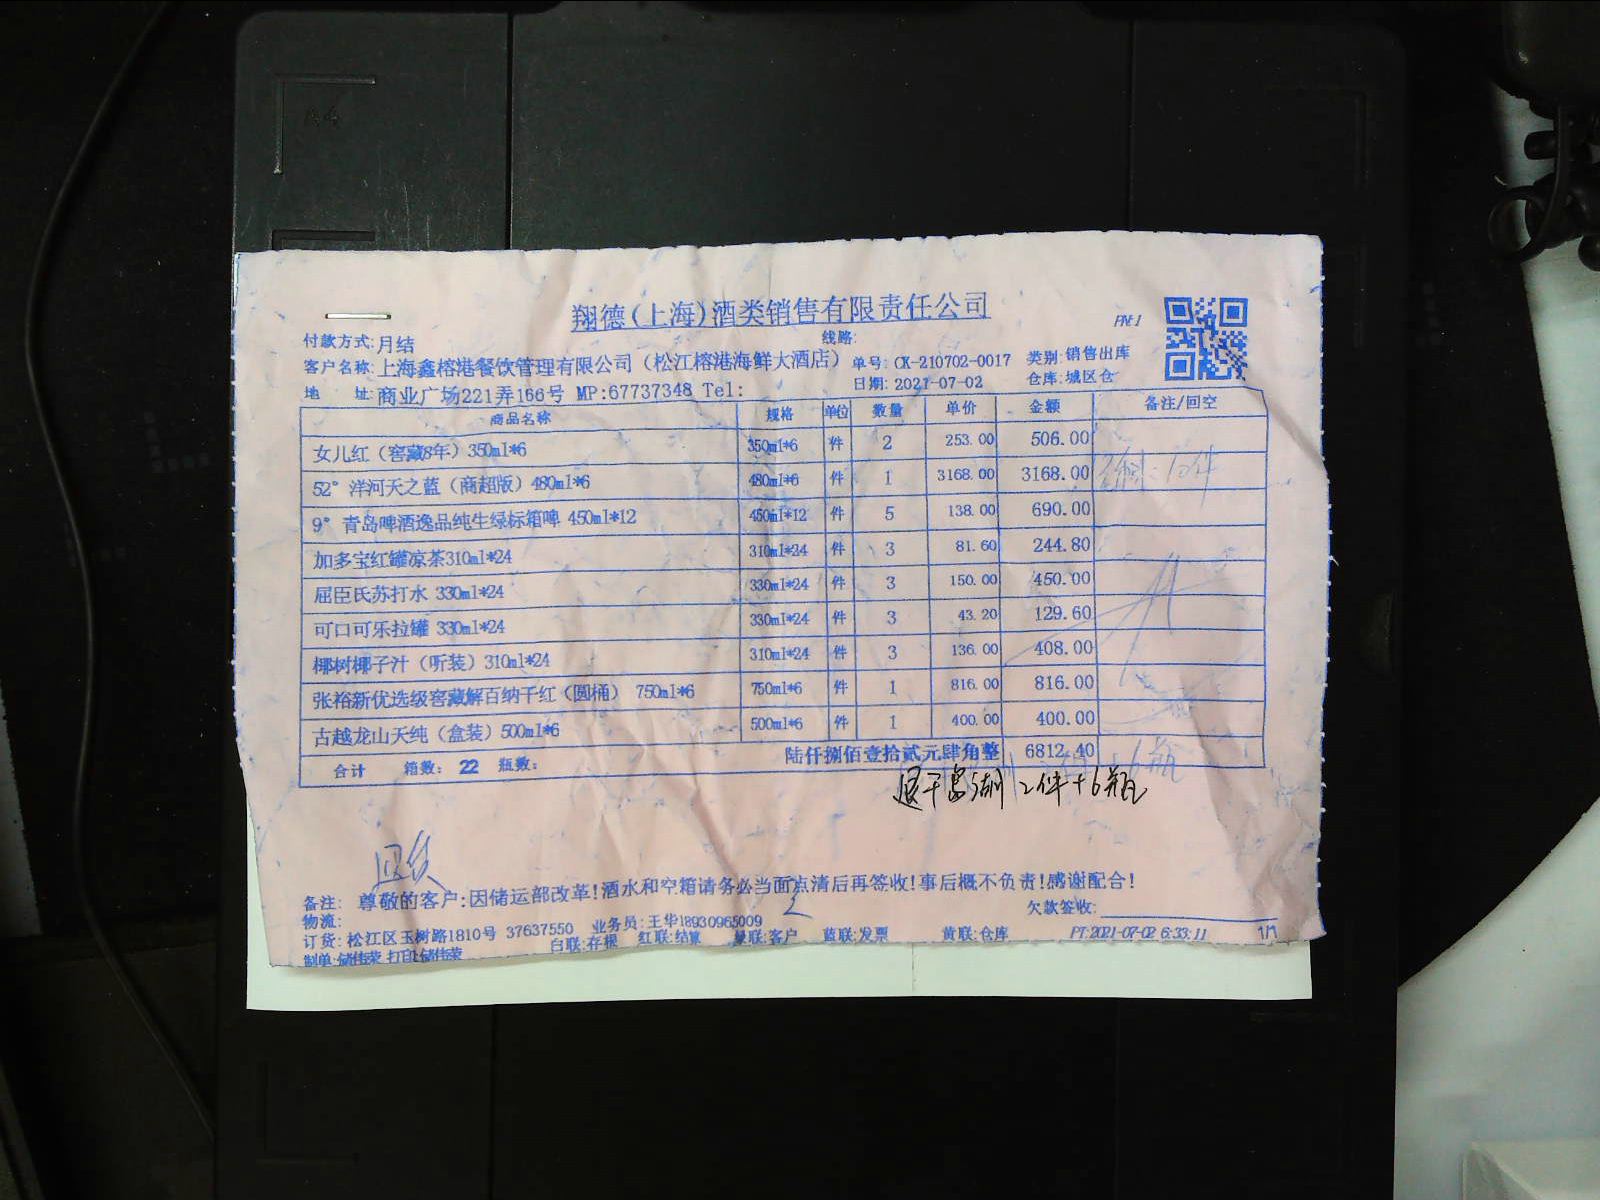 翔德(上海)酒类销售有限责任公司
付款方式:月结 线路:
客户名称:上海鑫榕港餐饮管理有限公司（松江榕港海鲜大酒店） 单号: CK-210702-0017 类别:销售出库
地 址:商业广场221弄166号 MP:67737348 Tel: 日期:2021-07-02 仓库:城区仓
商品名称 规格 单位 数量 单价 金额 备注/回空
女儿红（窖藏8年）350ml*6 350ml*6 件 2 253.00 506.00
52°洋河天之蓝（商超版）480ml*6 480ml*6 件 1 3168.00 3168.00
9°青岛啤酒逸品纯生绿标箱啤 450ml*12 450ml*12 件 5 138.00 690.00
加多宝红罐凉茶310ml*24 310ml*24 件 3 81.60 244.80
屈臣氏苏打水 330ml*24 330ml*24 件 3 150.00 450.00
可口可乐拉罐 330ml*24 330ml*24 件 3 43.20 129.60
椰树椰子汁（听装）310ml*24 310ml*24 件 3 136.00 408.00
张裕新优选级窖藏解百纳干红（圆桶） 750ml*6 750ml*6 件 1 816.00 816.00
古越龙山天纯（盒装）500ml*6 500ml*6 件 1 400.00 400.00
合计 箱数: 22 瓶数: 陆仟捌佰壹拾贰元肆角整 6812.40
退千岛湖 2件+6瓶
备注: 尊敬的客户:因储运部改革!酒水和空箱请务必当面点清后再签收!事后概不负责!感谢配合!
物流: 欠款签收:
订货:松江区玉树路1810号 37637550 业务员:王华18930965009
制单:储伟荣 打印:储伟荣 白联:存根 红联:结算 绿联:客户 蓝联:发票 黄联:仓库 PT:2021-07-02 6:33:11 1/1